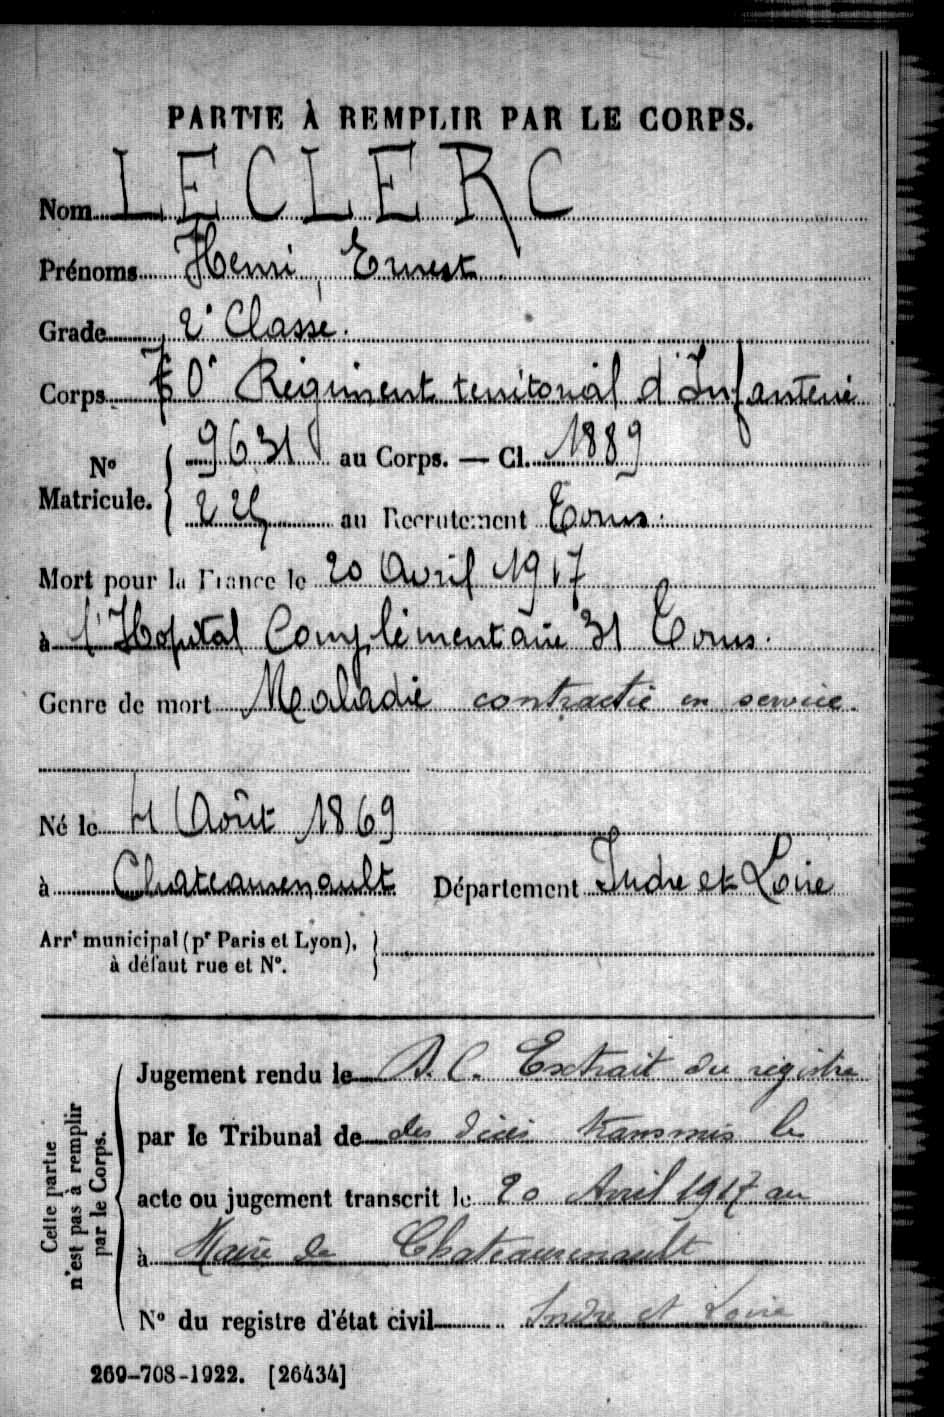 PARTIE À REMPLIR PAR LE CORPS.
Nom LECLERC
Prénoms Henri, Ernest
Grade 2e Classe.
Corps 70e Régiment territorial d'Infanterie
No Matricule. { 9631 au Corps. — Cl. 1889
225 au Recrutement Tours.
Mort pour la France le 20 Avril 1917
à l'Hopital Complémentaire 31 Tours.
Genre de mort Maladie contractée en service.
Né le 4 Août 1869
à Chateaurenault Département Indre et Loire
Arrt municipal (pr Paris et Lyon),
à défaut rue et No.
Cette partie
n'est pas à remplir
par le Corps.
Jugement rendu le D. C. Extrait du registre
par le Tribunal de des décès transmis le
acte ou jugement transcrit le 20 Avril 1917 au
à Maire de Chateaurenault
No du registre d'état civil Indre et Loire
269-708-1922. [26434]